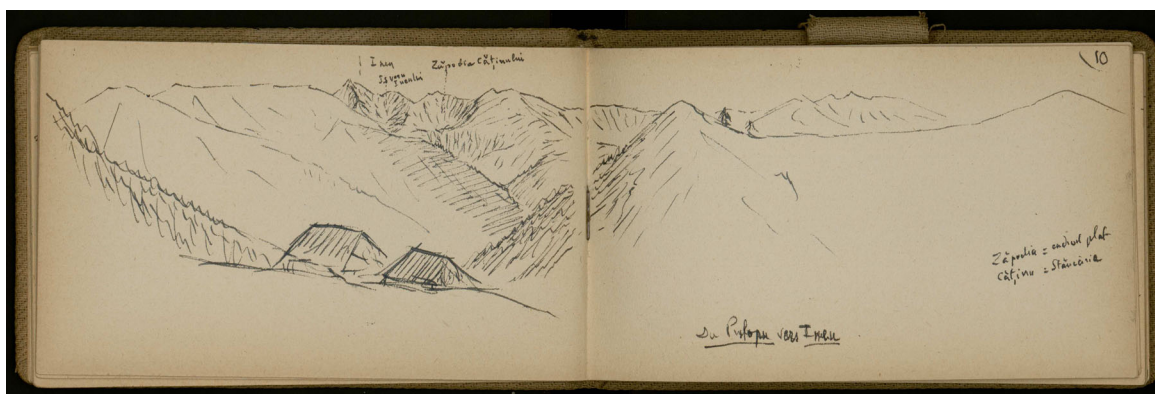 10
Ineu
Izvoru Ineului
Zăpodia Căţinului
Zăpodia = endroit plat
Căţinu = Stâncăria
Du Pufopu vers Ineu